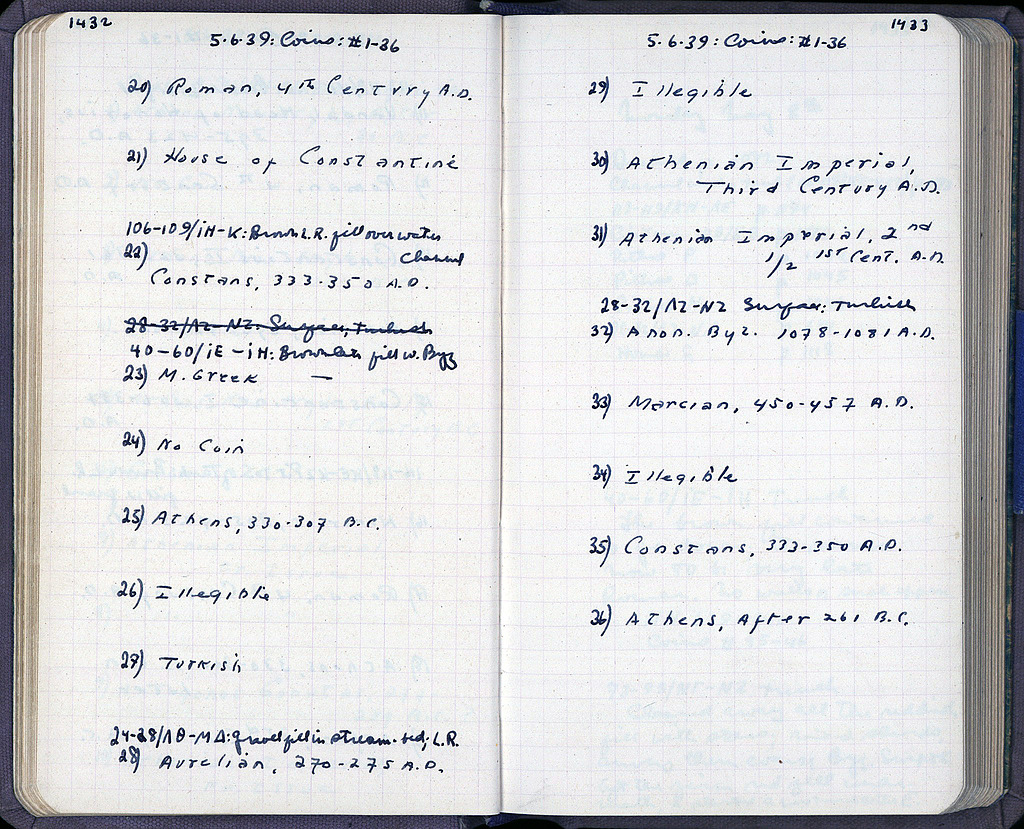 1432
5.6.39: Coins: #1-36
20) Roman, 4th Century A.D.
21) House of Constantine
106-109/ΙΗ-Κ: Brown L.R. fill over water
channel
22)
Constans, 333-350 A.D.
28-32/ΛΖ-ΝΖ: Surface; Turkish
40-60/ΙΕ-ΙΗ: Brown late fill w. Byz
23) M. Greek —
24) No Coin
25) Athens, 330-307 B.C.
26) Illegible
27) Turkish
24-28/ΛΘ-ΜΔ: gravel fill in stream bed; L.R.
28) Aurelian, 270-275 A.D.
1433
5.6.39: Coins: #1-36
29) Illegible
30) Athenian Imperial,
Third Century A.D.
31) Athenian Imperial, 2nd
1/2 1st Cent. A.D.
28-32/ΛΖ-ΝΖ Surface; Turkish
32) Anon. Byz. 1078-1081 A.D.
33) Marcian, 450-457 A.D.
34) Illegible
35) Constans, 333-350 A.D.
36) Athens, After 261 B.C.